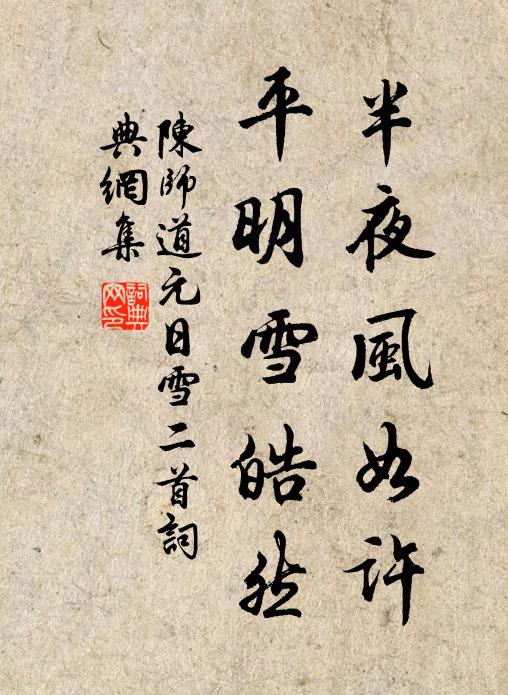 半夜風如許
平明雪皓然
陳師道元日雪二首詞
典網集
詞典网印